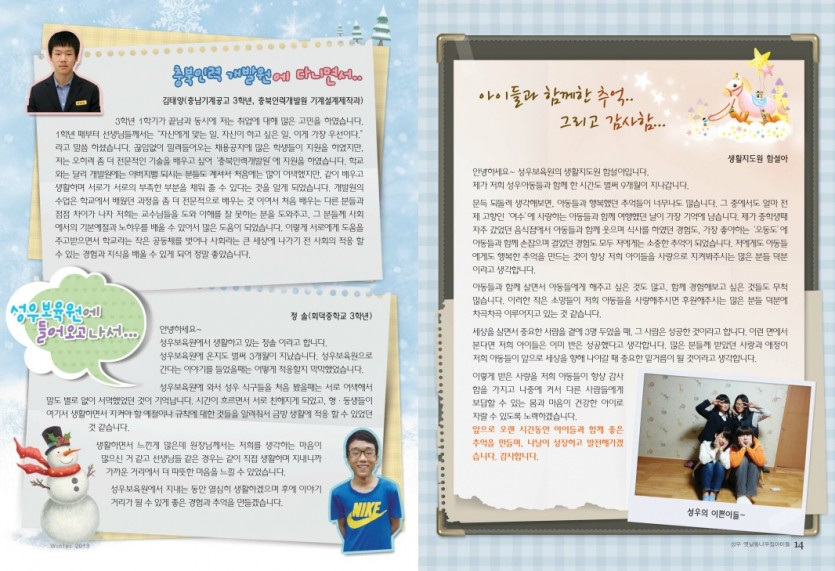 충북인력 개발원에 다니면서..
김태양(충남기계공고 3학년, 충북인력개발원 기계설계제작과)
3학년 1학기가 끝남과 동시에 저는 취업에 대해 많은 고민을 하였습니다.
1학년 때부터 선생님들께서는 “자신에게 맞는 일, 자신이 하고 싶은 일, 이게 가장 우선이다.”
라고 말씀 하셨습니다. 끊임없이 밀려들어오는 채용공지에 많은 학생들이 지원을 하였지만,
저는 오히려 좀 더 전문적인 기술을 배우고 싶어 ‘충북인력개발원’에 지원을 하였습니다. 학교
와는 달리 개발원에는 아버지뻘 되시는 분들도 계셔서 처음에는 많이 어색했지만, 같이 배우고
생활하며 서로가 서로의 부족한 부분을 채워 줄 수 있다는 것을 알게 되었습니다. 개발원의
수업은 학교에서 배웠던 과정을 좀 더 전문적으로 배우는 것 이여서 처음 배우는 다른 분들과
점점 차이가 나자 저희는 교수님들을 도와 이해를 잘 못하는 분을 도와주고, 그 분들께 사회
에서의 기본예절과 노하우를 배울 수 있어서 많은 도움이 되었습니다. 이렇게 서로에게 도움을
주고받으면서 학교라는 작은 공동체를 벗어나 사회라는 큰 세상에 나가기 전 사회의 적응 할
수 있는 경험과 지식을 배울 수 있게 되어 정말 좋았습니다.
성우보육원에
들어오고 나서...
정 솔(회덕중학교 3학년)
안녕하세요~
성우보육원에서 생활하고 있는 정솔 이라고 합니다.
성우보육원에 온지도 벌써 3개월이 지났습니다. 성우보육원으로
간다는 이야기를 들었을때는 어떻게 적응할지 막막했었습니다.
성우보육원에 와서 성우 식구들을 처음 봤을때는 서로 어색해서
말도 별로 없이 서먹했었던 것이 기억납니다. 시간이 흐르면서 서로 친해지게 되었고, 형·동생들이
여기서 생활하면서 지켜야 할 예절이나 규칙에 대한 것들을 알려줘서 금방 생활에 적응 할 수 있었던
것 같습니다.
생활하면서 느낀게 많은데 원장님께서는 저희를 생각하는 마음이
많으신 거 같고 선생님들 같은 경우는 같이 직접 생활하며 지내니까
가까운 거리에서 더 따뜻한 마음을 느낄 수 있었습니다.
성우보육원에서 지내는 동안 열심히 생활하겠으며 후에 이야기
거리가 될 수 있게 좋은 경험과 추억을 만들겠습니다.
NIKE
Winter 2013
아이들과 함께한 추억..
그리고 감사함...
생활지도원 함설아
안녕하세요~ 성우보육원의 생활지도원 함설아입니다.
제가 저희 성우아동들과 함께 한 시간도 벌써 9개월이 지나갑니다.
문득 되돌려 생각해보면, 아동들과 행복했던 추억들이 너무나도 많습니다. 그 중에서도 얼마 전
제 고향인 ‘여수’에 사랑하는 아동들과 함께 여행했던 날이 가장 기억에 남습니다. 제가 중학생때
자주 갔었던 음식점에서 아동들과 함께 웃으며 식사를 하였던 경험도, 가장 좋아하는 ‘오동도’에
아동들과 함께 손잡으며 걸었던 경험도 모두 저에게는 소중한 추억이 되었습니다. 저에게도 아동들
에게도 행복한 추억을 만드는 것이 항상 저희 아이들을 사랑으로 지켜봐주시는 많은 분들 덕분
이라고 생각합니다.
아동들과 함께 살면서 아동들에게 해주고 싶은 것도 많고, 함께 경험해보고 싶은 것들도 무척
많습니다. 이러한 작은 소망들이 저희 아동들을 사랑해주시면 후원해주시는 많은 분들 덕분에
차곡차곡 이루어지고 있는 것 같습니다.
세상을 살면서 중요한 사람을 곁에 3명 두었을 때, 그 사람은 성공한 것이라고 합니다. 이런 면에서
본다면 저희 아이들은 이미 반은 성공했다고 생각합니다. 많은 분들께 받았던 사랑과 애정이
저희 아동들이 앞으로 세상을 향해 나아갈 때 중요한 밑거름이 될 것이라고 생각합니다.
이렇게 받은 사랑을 저희 아동들이 항상 감사
함을 가지고 나중에 커서 다른 사람들에게
보답할 수 있는 몸과 마음이 건강한 아이로
자랄 수 있도록 노력하겠습니다.
앞으로 오랜 시간동안 아이들과 함께 좋은
추억을 만들며, 나날이 성장하고 발전해가겠
습니다. 감사합니다.
성우의 이쁜이들~
14